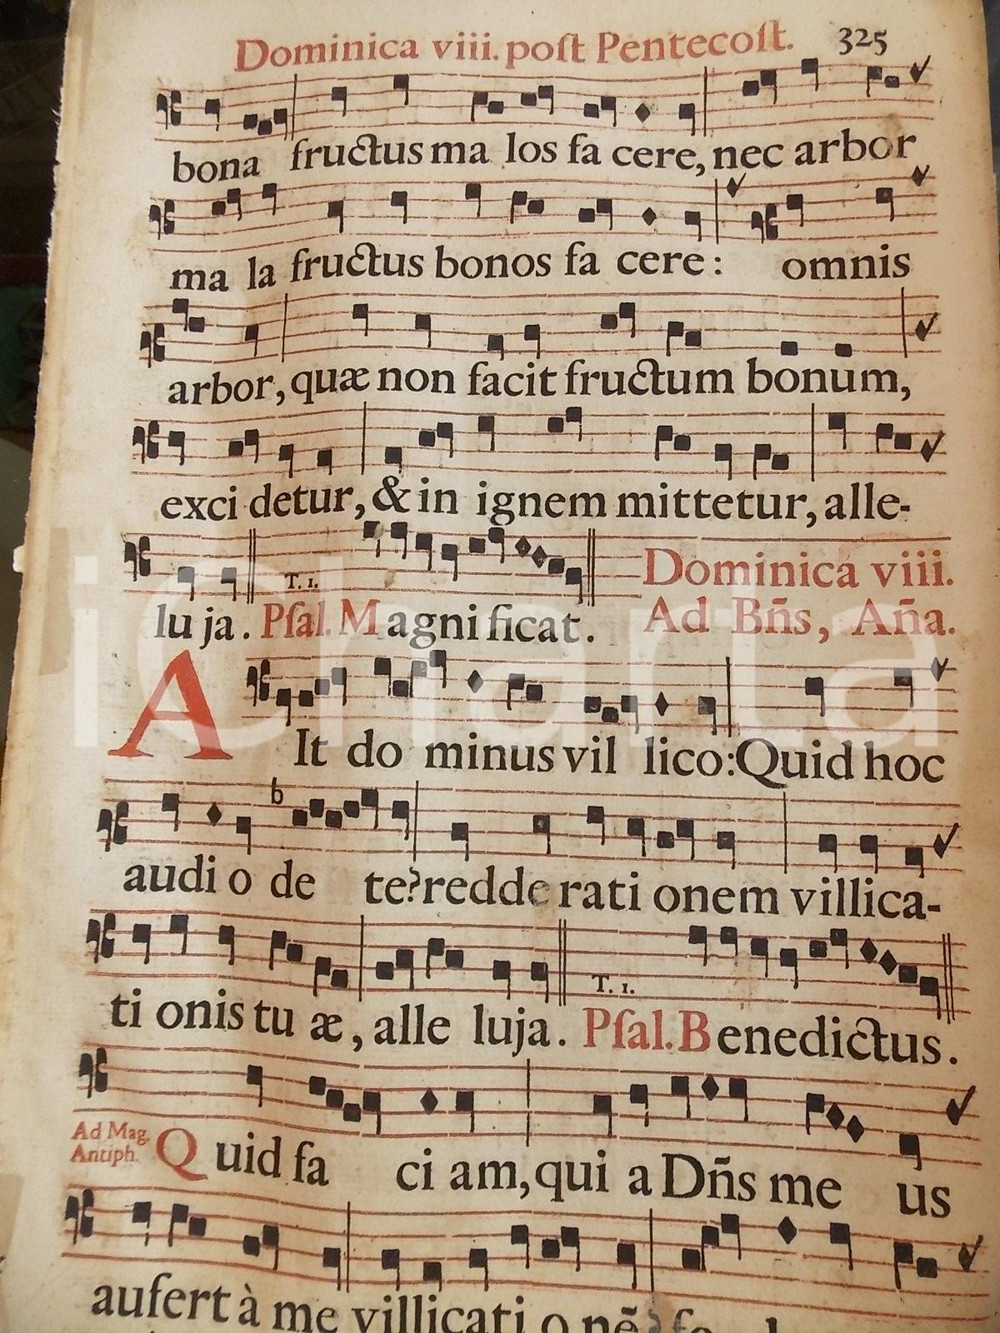 Dominica viii. poſt Pentecoſt. 325
bona fructus ma los fa cere, nec arbor
ma la fructus bonos fa cere: omnis
arbor, quæ non facit fructum bonum,
exci detur, & in ignem mittetur, alle-
T. 1. Dominica viii.
lu ja. Pſal. Magni ficat. Ad Bñs, Aña.
AIt do minus vil lico: Quid hoc
b
audi o de te? redde rati onem villica-
T. 1.
ti onis tu æ, alle luja. Pſal. Benedictus.
Ad Mag. Antiph. Quid fa ci am, qui a Dñs me us
aufert à me villicati o nẽ?
iCharta